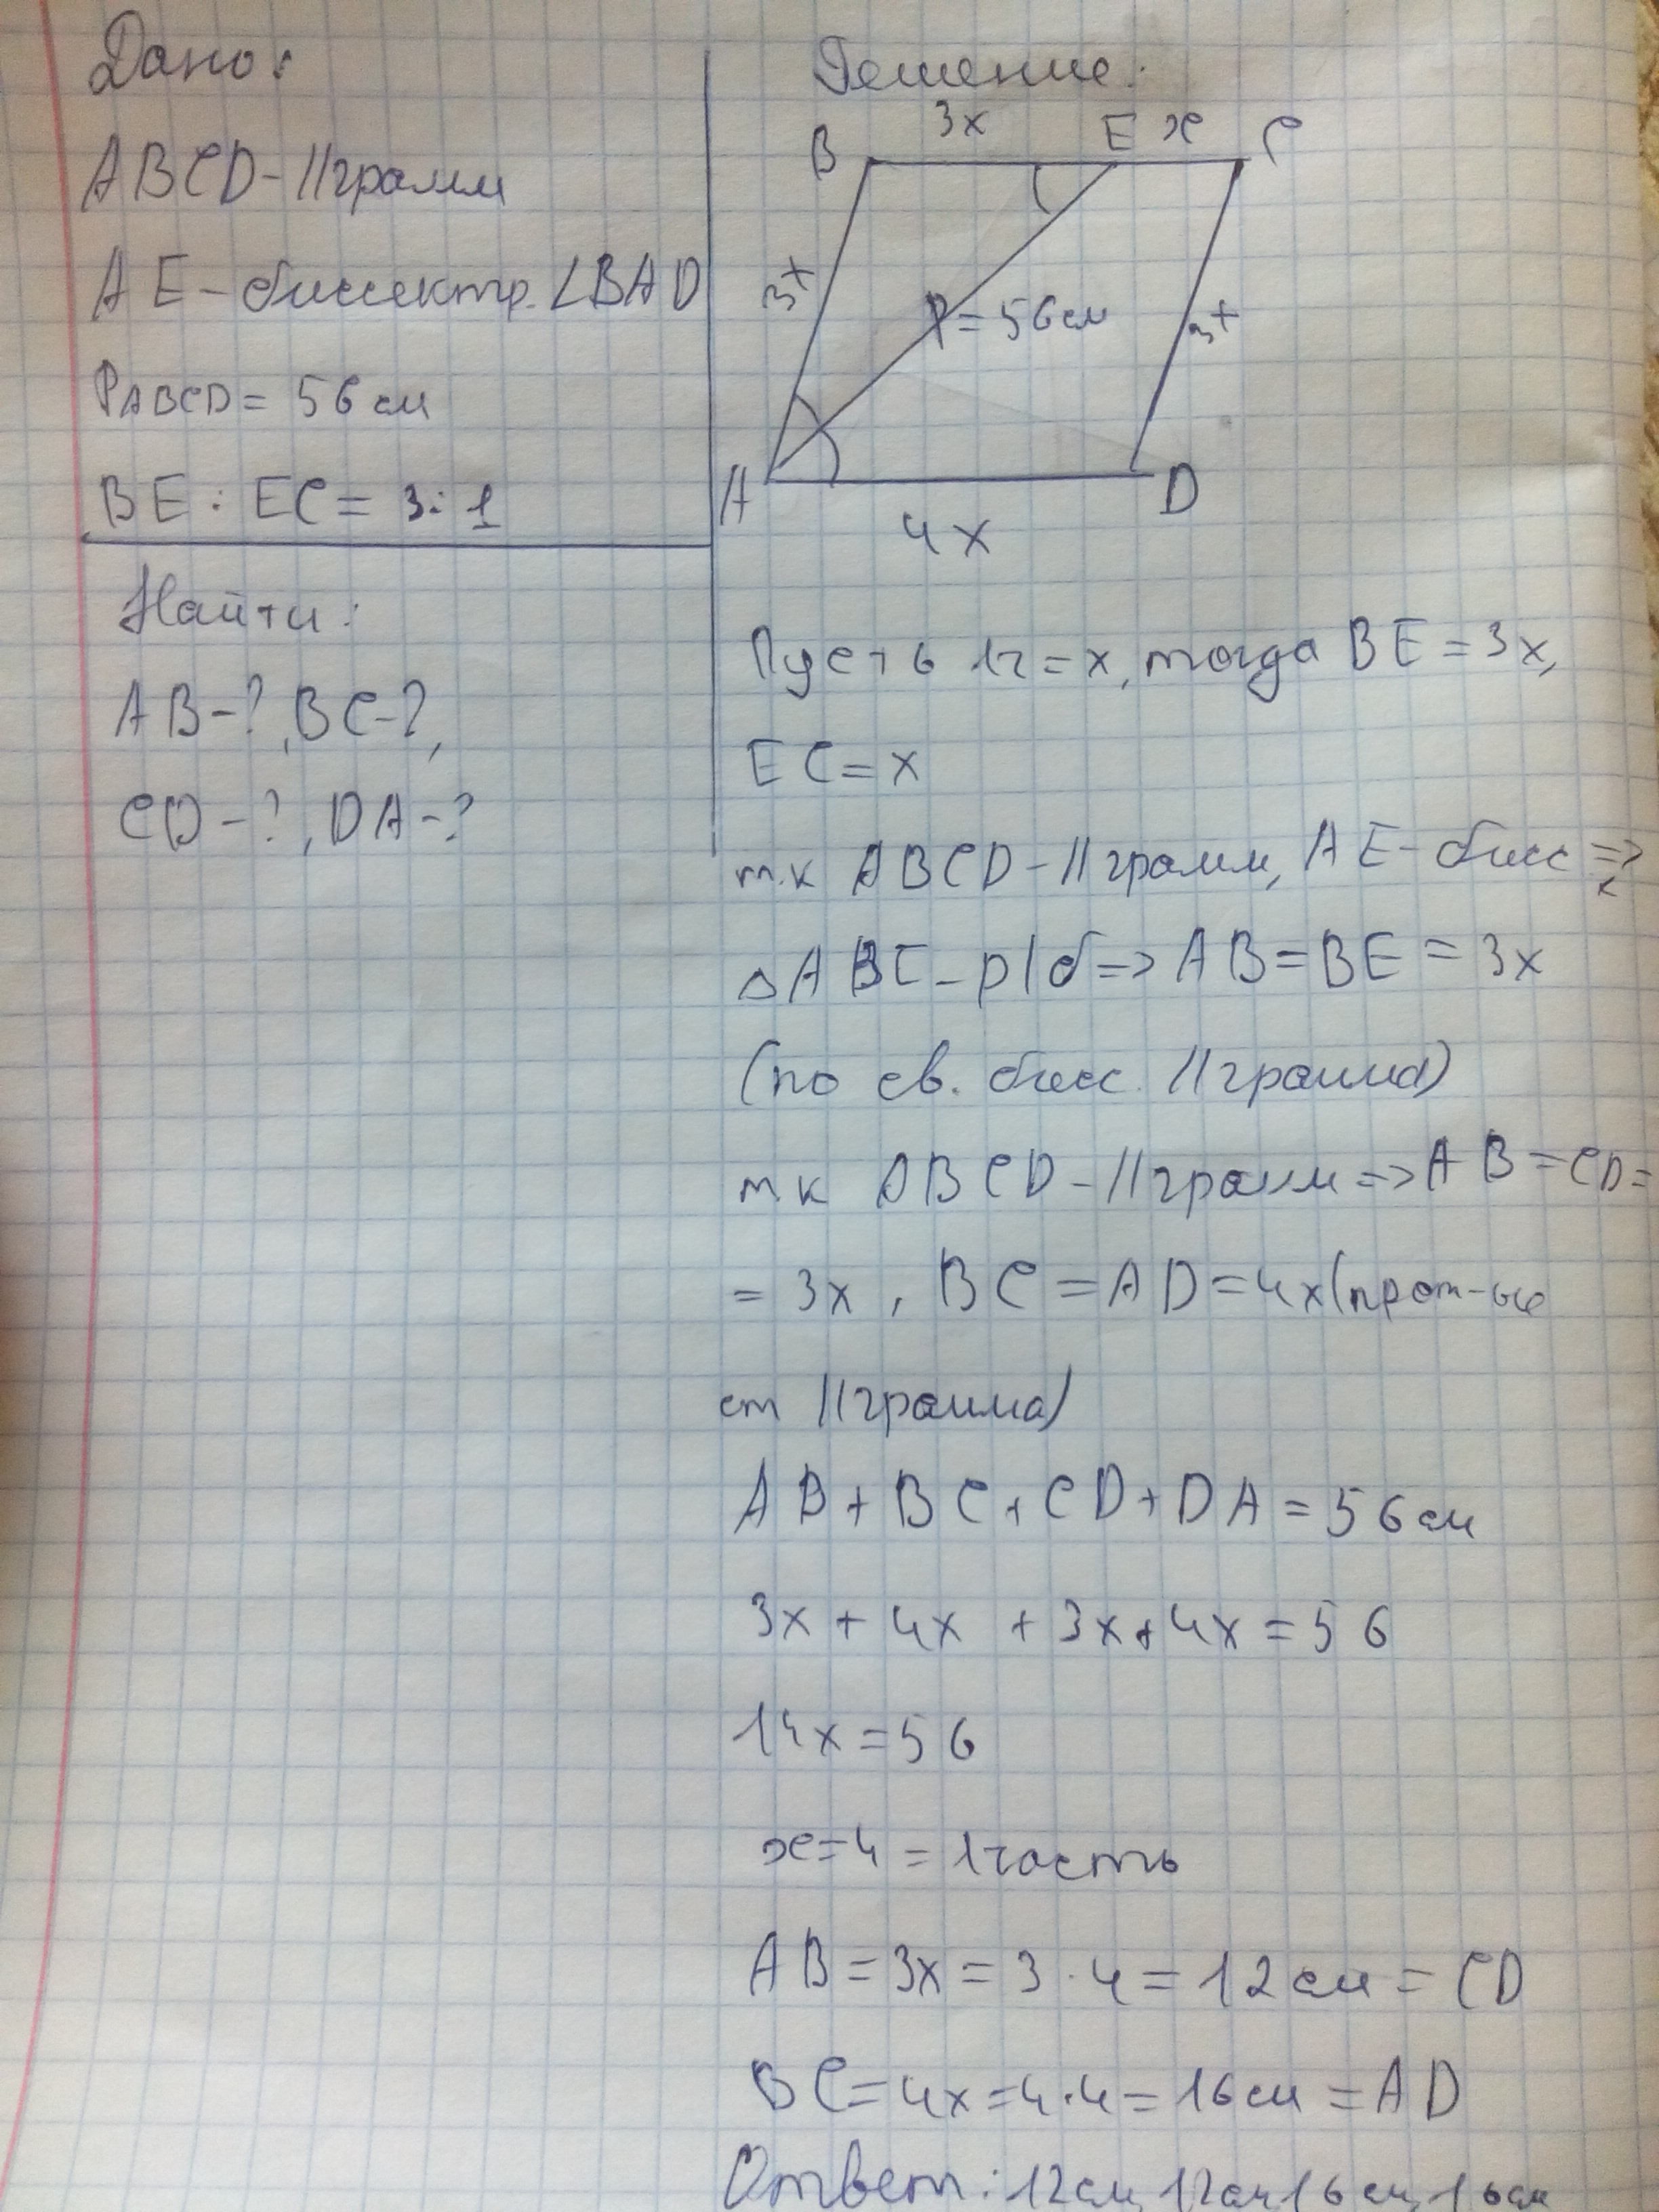 Дано:
ABCD-||грамм
AE-биссектр. ∠BAD
PABCD = 56 см
BE : EC = 3:1
Найти:
AB-?, BC-?,
CD-?, DA-?
Решение:
3x
B
E
x
C
3x
P=56см
3x
A
D
4x
Пусть 1ч=x, тогда BE=3x,
EC=x
т.к ABCD-||грамм, AE-бисс =>
△ABE-р/б=> AB=BE=3x
(по св. бисс. ||грамма)
т.к ABCD-||грамм=>AB=CD=
= 3x, BC=AD=4x(прот-ые
ст ||грамма)
AB+BC+CD+DA=56см
3x+4x+3x+4x=56
14x=56
x=4=1часть
AB=3x=3·4=12см=CD
BC=4x=4·4=16см=AD
Ответ: 12см, 12см, 16см, 16см